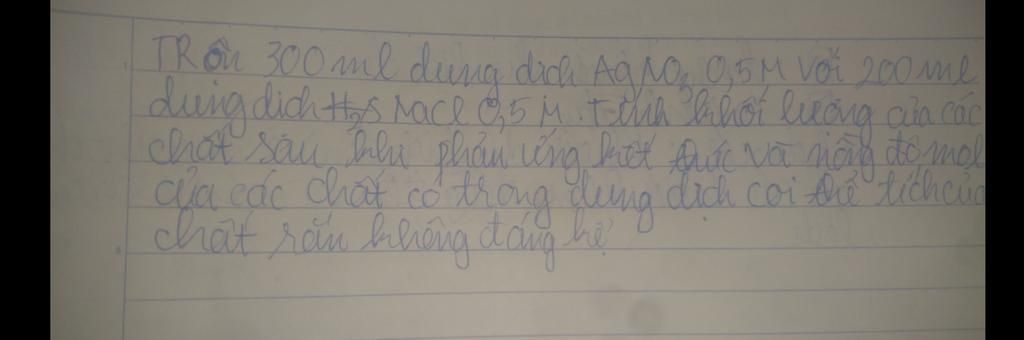 TRộn 300 ml dung dịch AgNO3 0,5M với 200 ml
dung dịch H2S NaCl 0,5 M. Tính khối lượng của các
chất sau khi phản ứng kết thúc và nồng độ mol
của các chất có trong dung dịch coi thể tích của
chất rắn không đáng kể